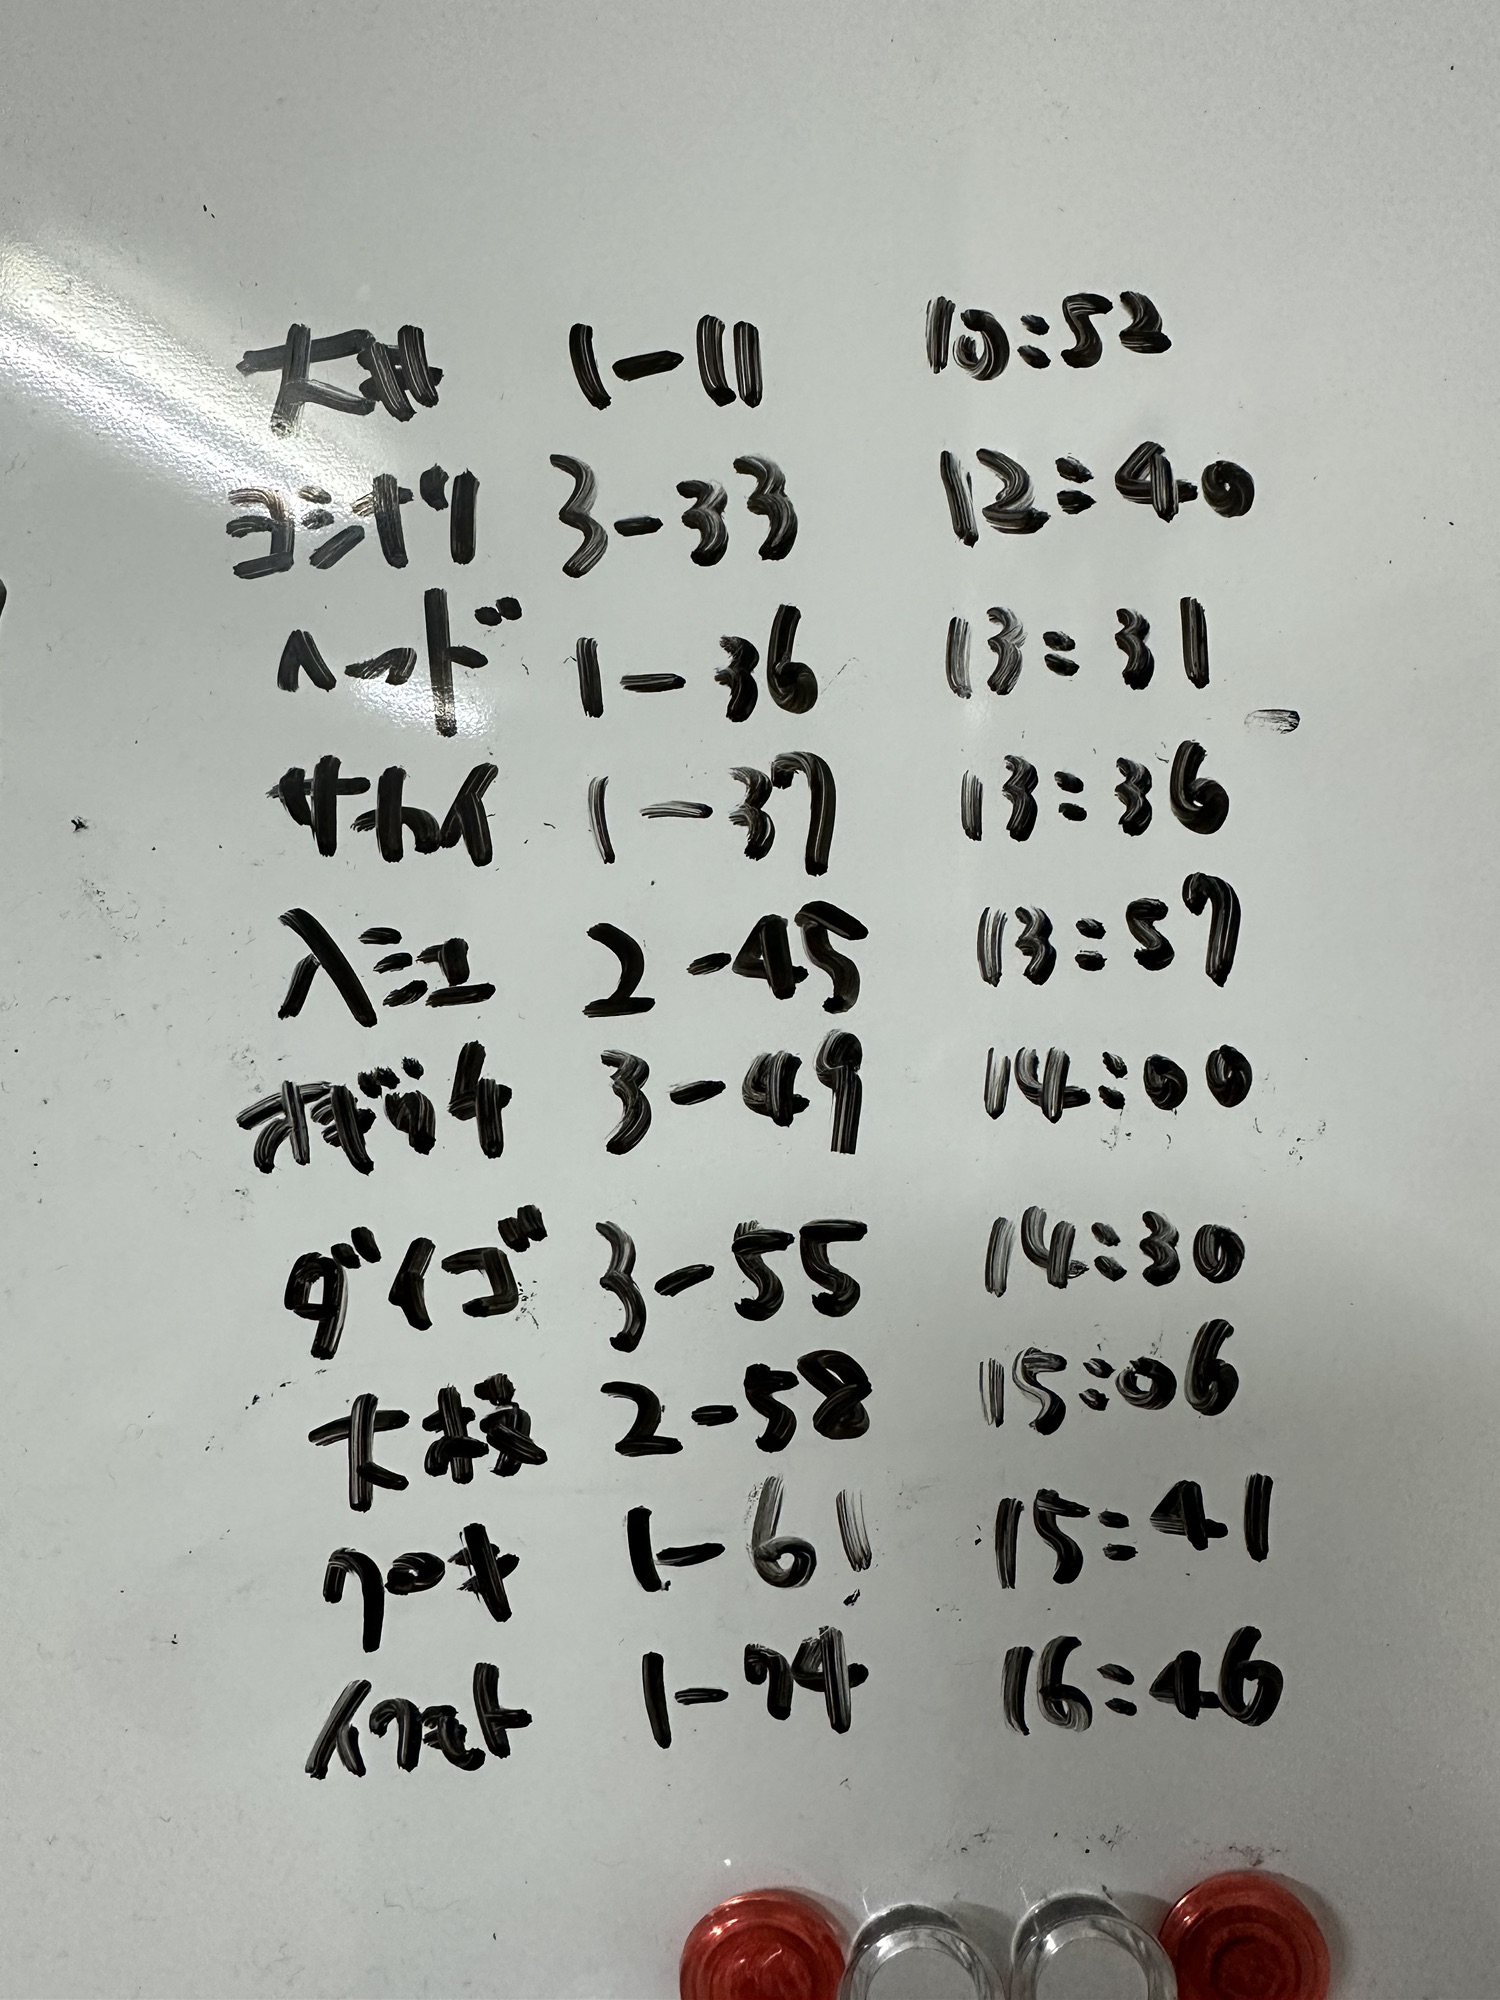 大井 1-11 10:52
コンドウ 3-33 12:40
ヘッド 1-36 13:31
サカイ 1-37 13:36
入江 2-45 13:57
3-49 14:00
ダイゴ 3-55 14:30
大桜 2-58 15:06
クロキ 1-61 15:41
イワモト 1-74 16:46